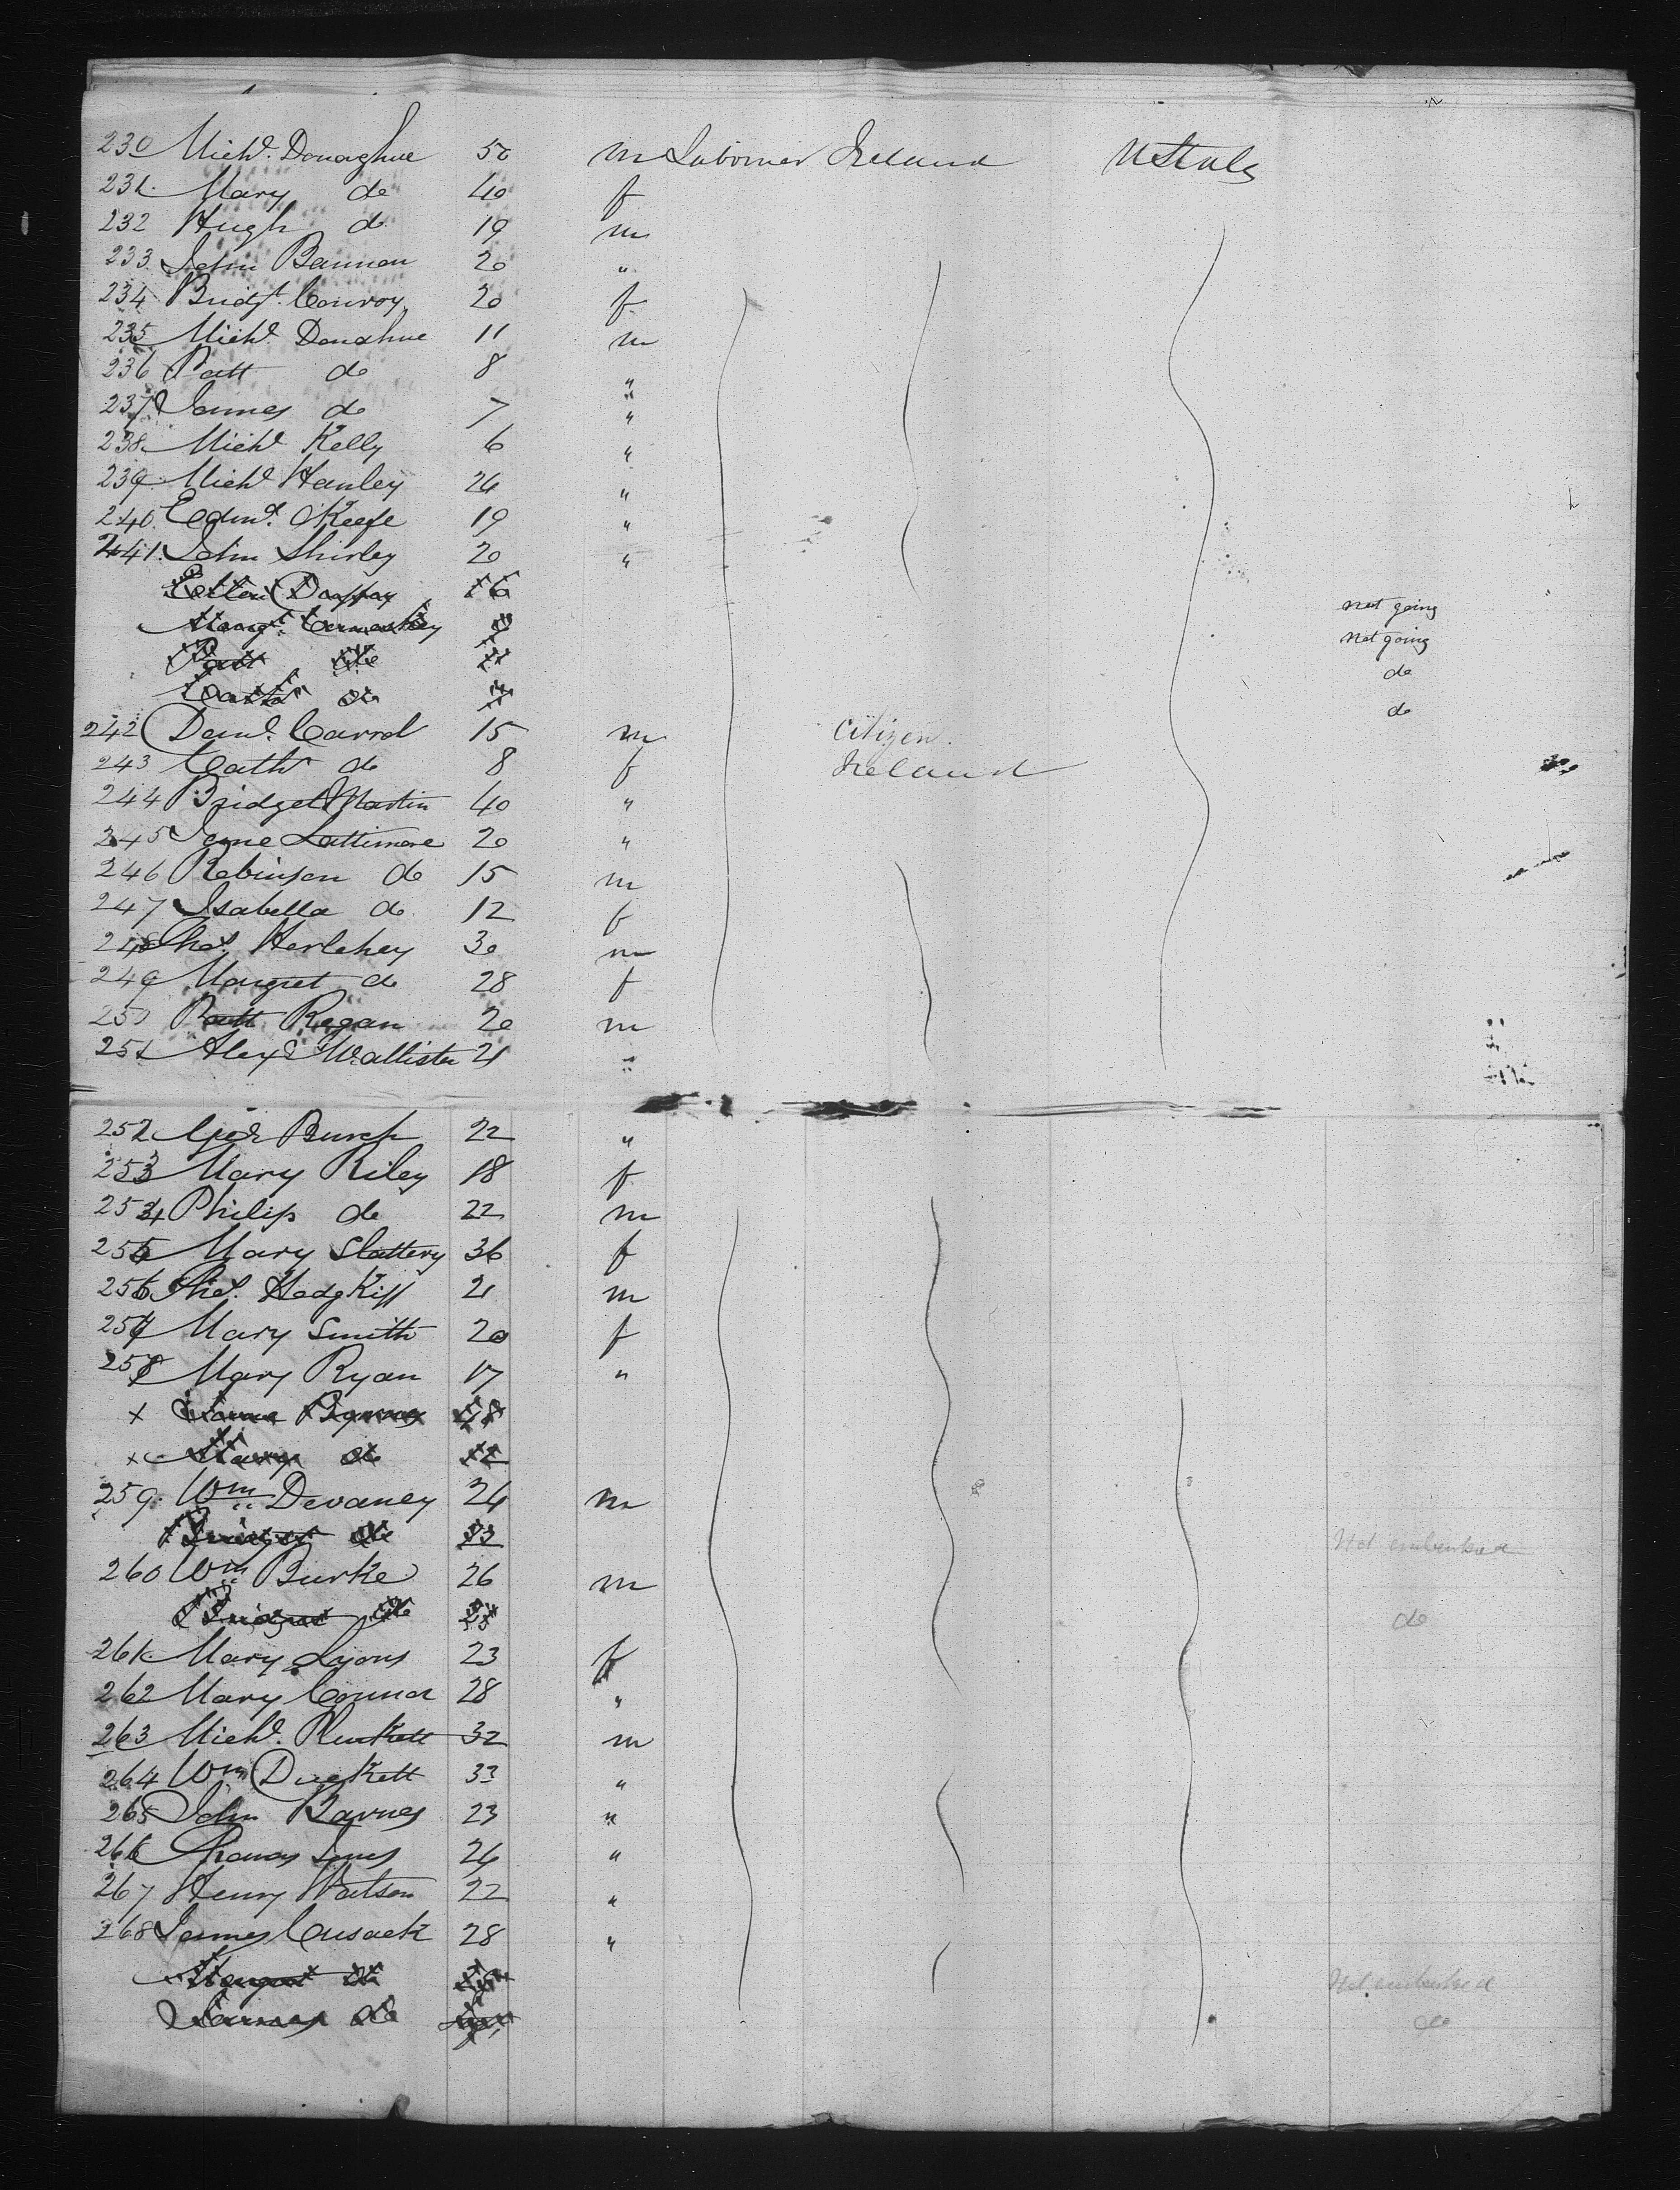 230 Michl. Donaghue 50 m Labourer Ireland U Stats
231. Mary do 40 f
232 Hugh do 19 m
233. John Bannon 20 "
234 Bridgt. Conroy 20 f
235 Michl. Donahue 11 m
236 Patt do 8 "
237 James do 7 "
238. Michl Kelly 6 "
239. Michl Hanley 24 "
240. Edmd. OKeefe 19 "
241. John Shirley 20 "
Ellen 16 not going
Margt. 9 not going
Patt do 11 do
Cathr do 7 do
242 Danl. Carrol 15 m Citizen.
243 Cathr do 8 f Ireland
244 Bridget Martin 40 "
245 Jane Lattimore 20 "
246 Robinson do 15 m
247 Isabella do 12 f
248 Thos. Herlehey 30 m
249 Margret do 28 f
250 Patt Regan 20 m
251 Alexr McAllister 21 "
252 Geo Burch 22 "
253 Mary Riley 18 f
254 Philip do 22 m
255 Mary Slattery 36 f
256 Thos. HodgKiss 21 m
257 Mary Smith 20 f
258 Mary Ryan 17 "
x 48
x Mary do 12
259. Wm. Devaney 24 m
Bridget do 23 Not embarked
260 Wm Burke 26 m
Bridget do 23 do
261. Mary Lyons 23 f
262 Mary Connor 28 "
263 Michl. Plunkett 32 m
264 Wm. Duckett 33 "
265 John Barnes 23 "
266 Thomas Jones 24 "
267 Henry Watson 22 "
268 James Cusack 28 "
Margret do Not embarked
James do do